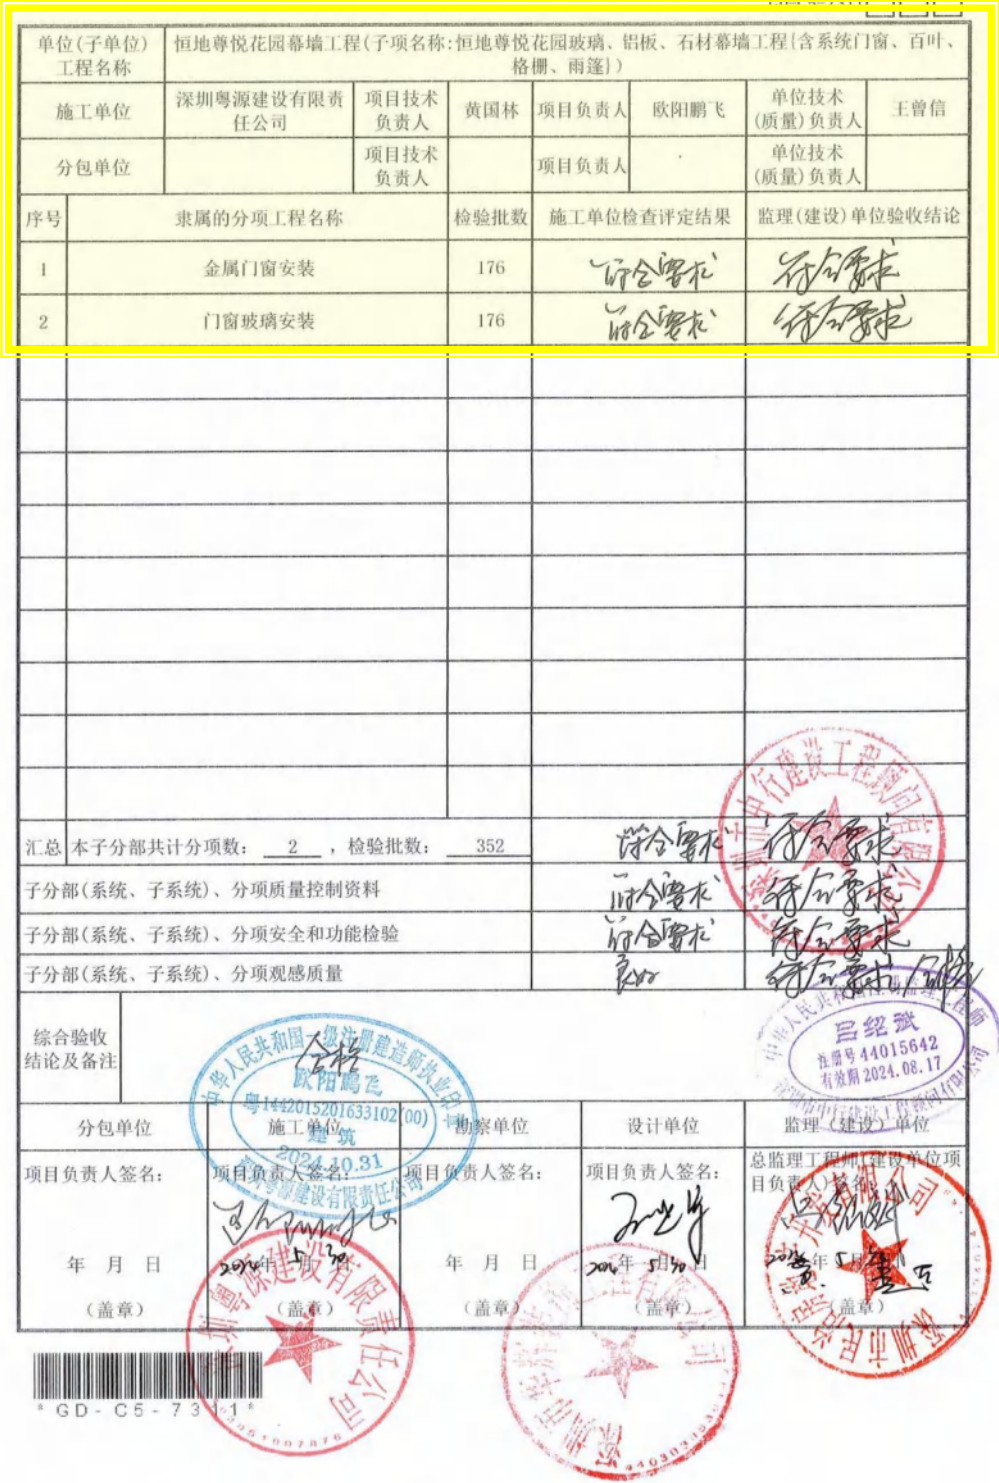 单位(子单位)
工程名称
恒地尊悦花园幕墙工程(子项名称:恒地尊悦花园玻璃、铝板、石材幕墙工程{含系统门窗、百叶、
格栅、雨篷})
施工单位
深圳粤源建设有限责
任公司
项目技术
负责人
黄国林
项目负责人
欧阳鹏飞
单位技术
(质量)负责人
王曾信
分包单位
项目技术
负责人
项目负责人
单位技术
(质量)负责人
序号 隶属的分项工程名称 检验批数 施工单位检查评定结果 监理(建设)单位验收结论
1 金属门窗安装 176 符合要求 符合要求
2 门窗玻璃安装 176 符合要求 符合要求
汇总 本子分部共计分项数: 2 ,检验批数: 352 符合要求 符合要求
子分部(系统、子系统)、分项质量控制资料 符合要求 符合要求
子分部(系统、子系统)、分项安全和功能检验 符合要求 符合要求
子分部(系统、子系统)、分项观感质量 良好 符合要求
综合验收
结论及备注
合格
中华人民共和国一级注册建造师执业印章
欧阳鹏飞
粤1442015201633102(00)
建筑
2024.10.31
吕绍斌
注册号44015642
有效期2024.08.17
分包单位 施工单位 勘察单位 设计单位 监理(建设)单位
项目负责人签名: 项目负责人签名: 项目负责人签名: 项目负责人签名: 总监理工程师(建设单位项
目负责人)签名:
年 月 日 2024年5月30日 年 月 日 年5月30日 年5月 日
(盖章) (盖章) (盖章) (盖章) (盖章)
*GD-C5-7311*